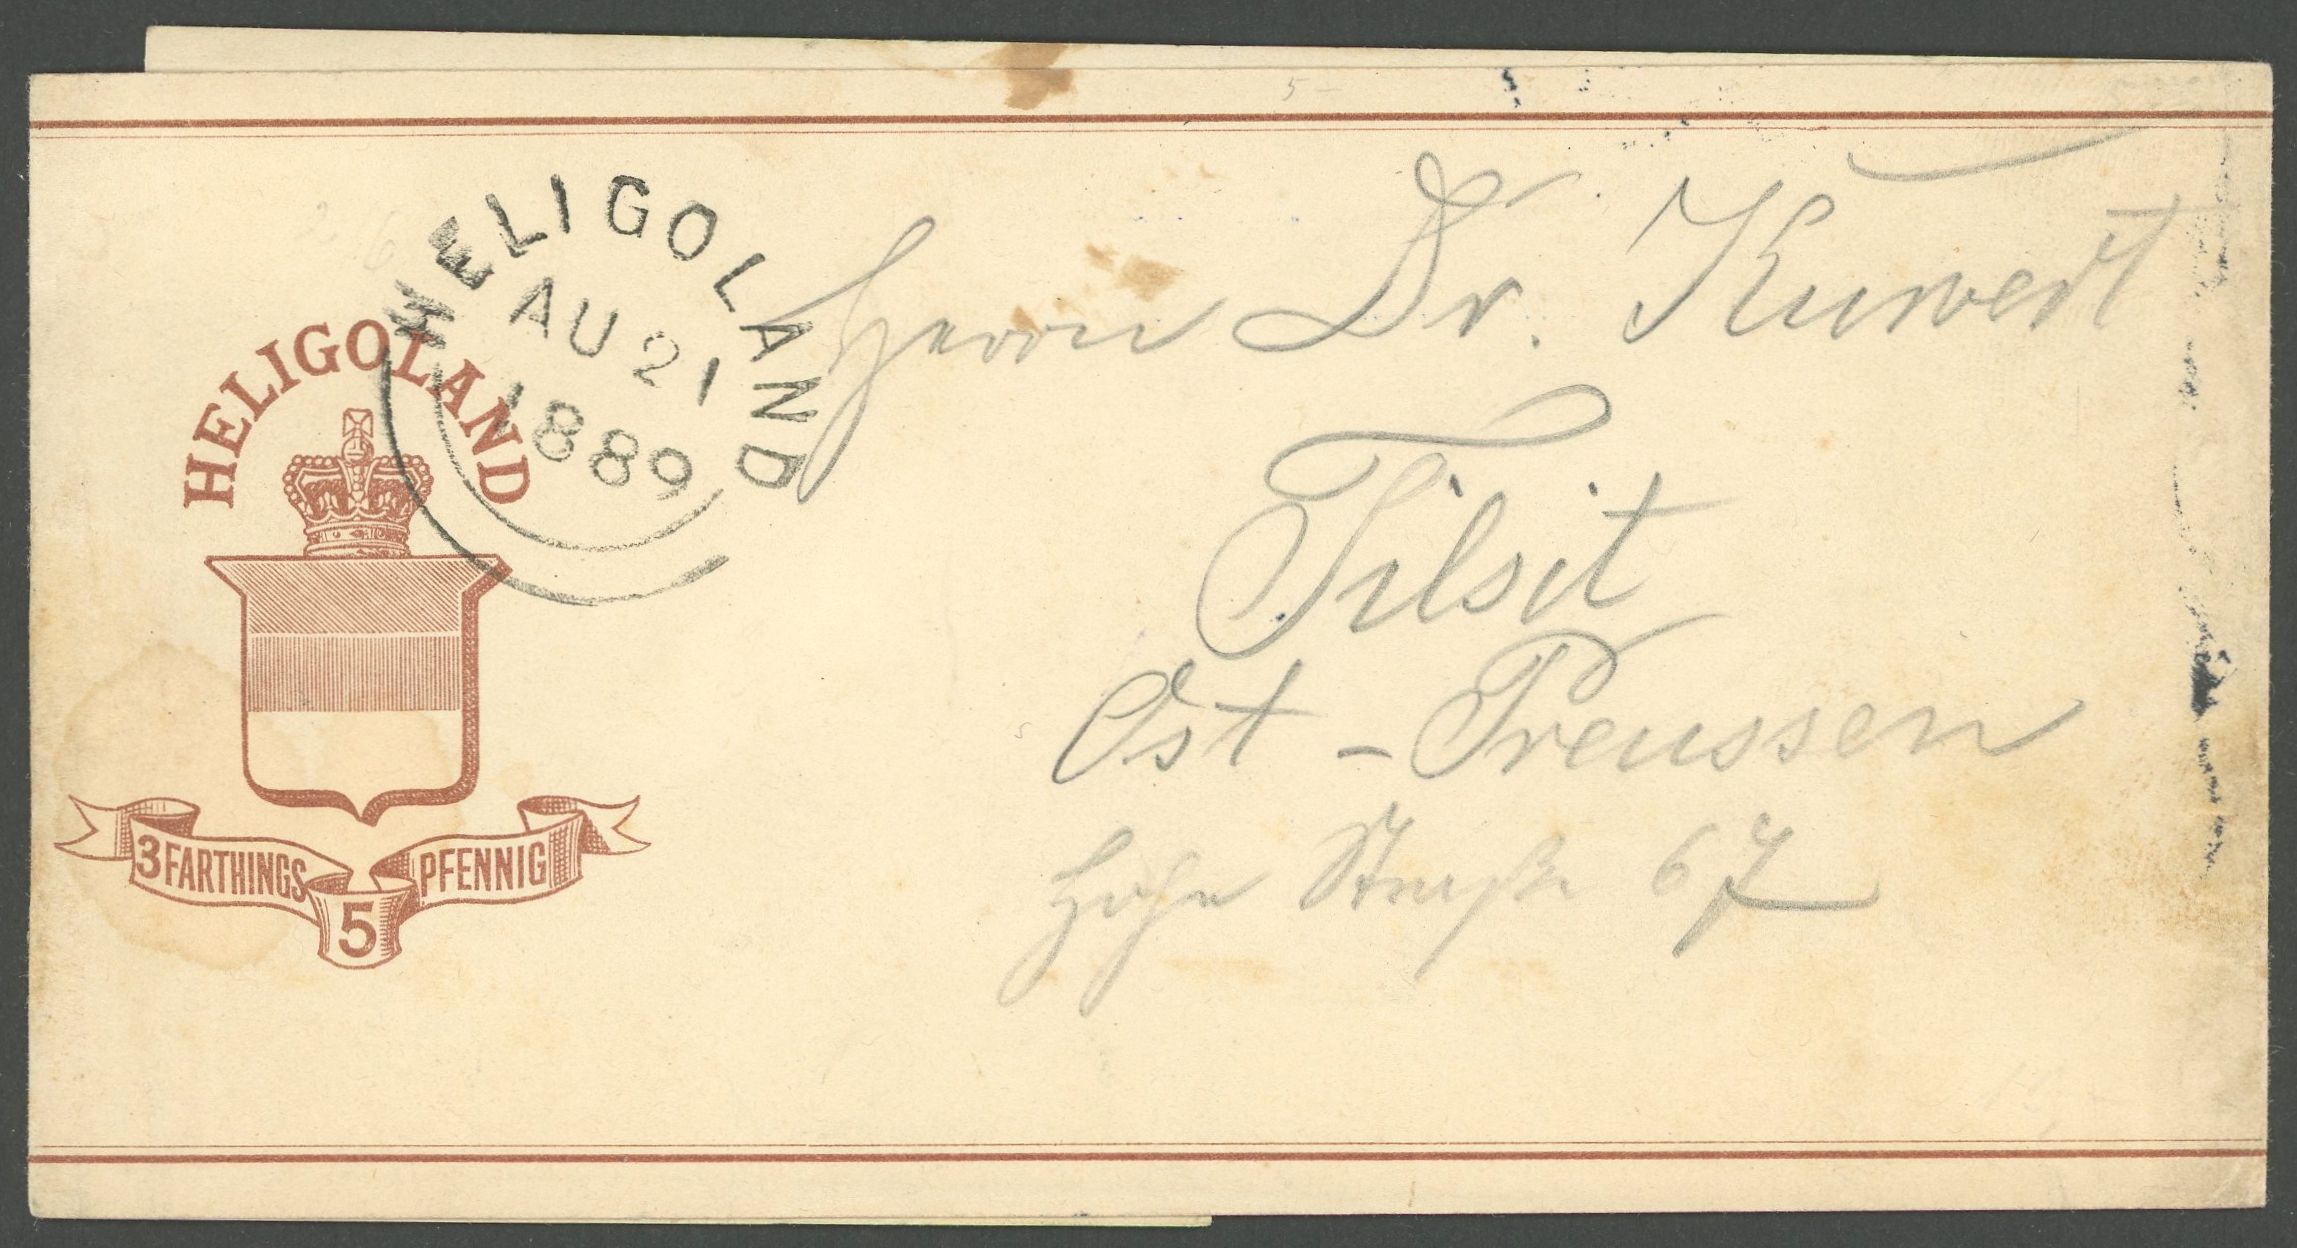 HELIGOLAND
AU 21
1889
HELIGOLAND
3 FARTHINGS 5 PFENNIG
Herrn Dr. Kuwert
Tilsit
Ost-Preussen
Hohe Straße 67